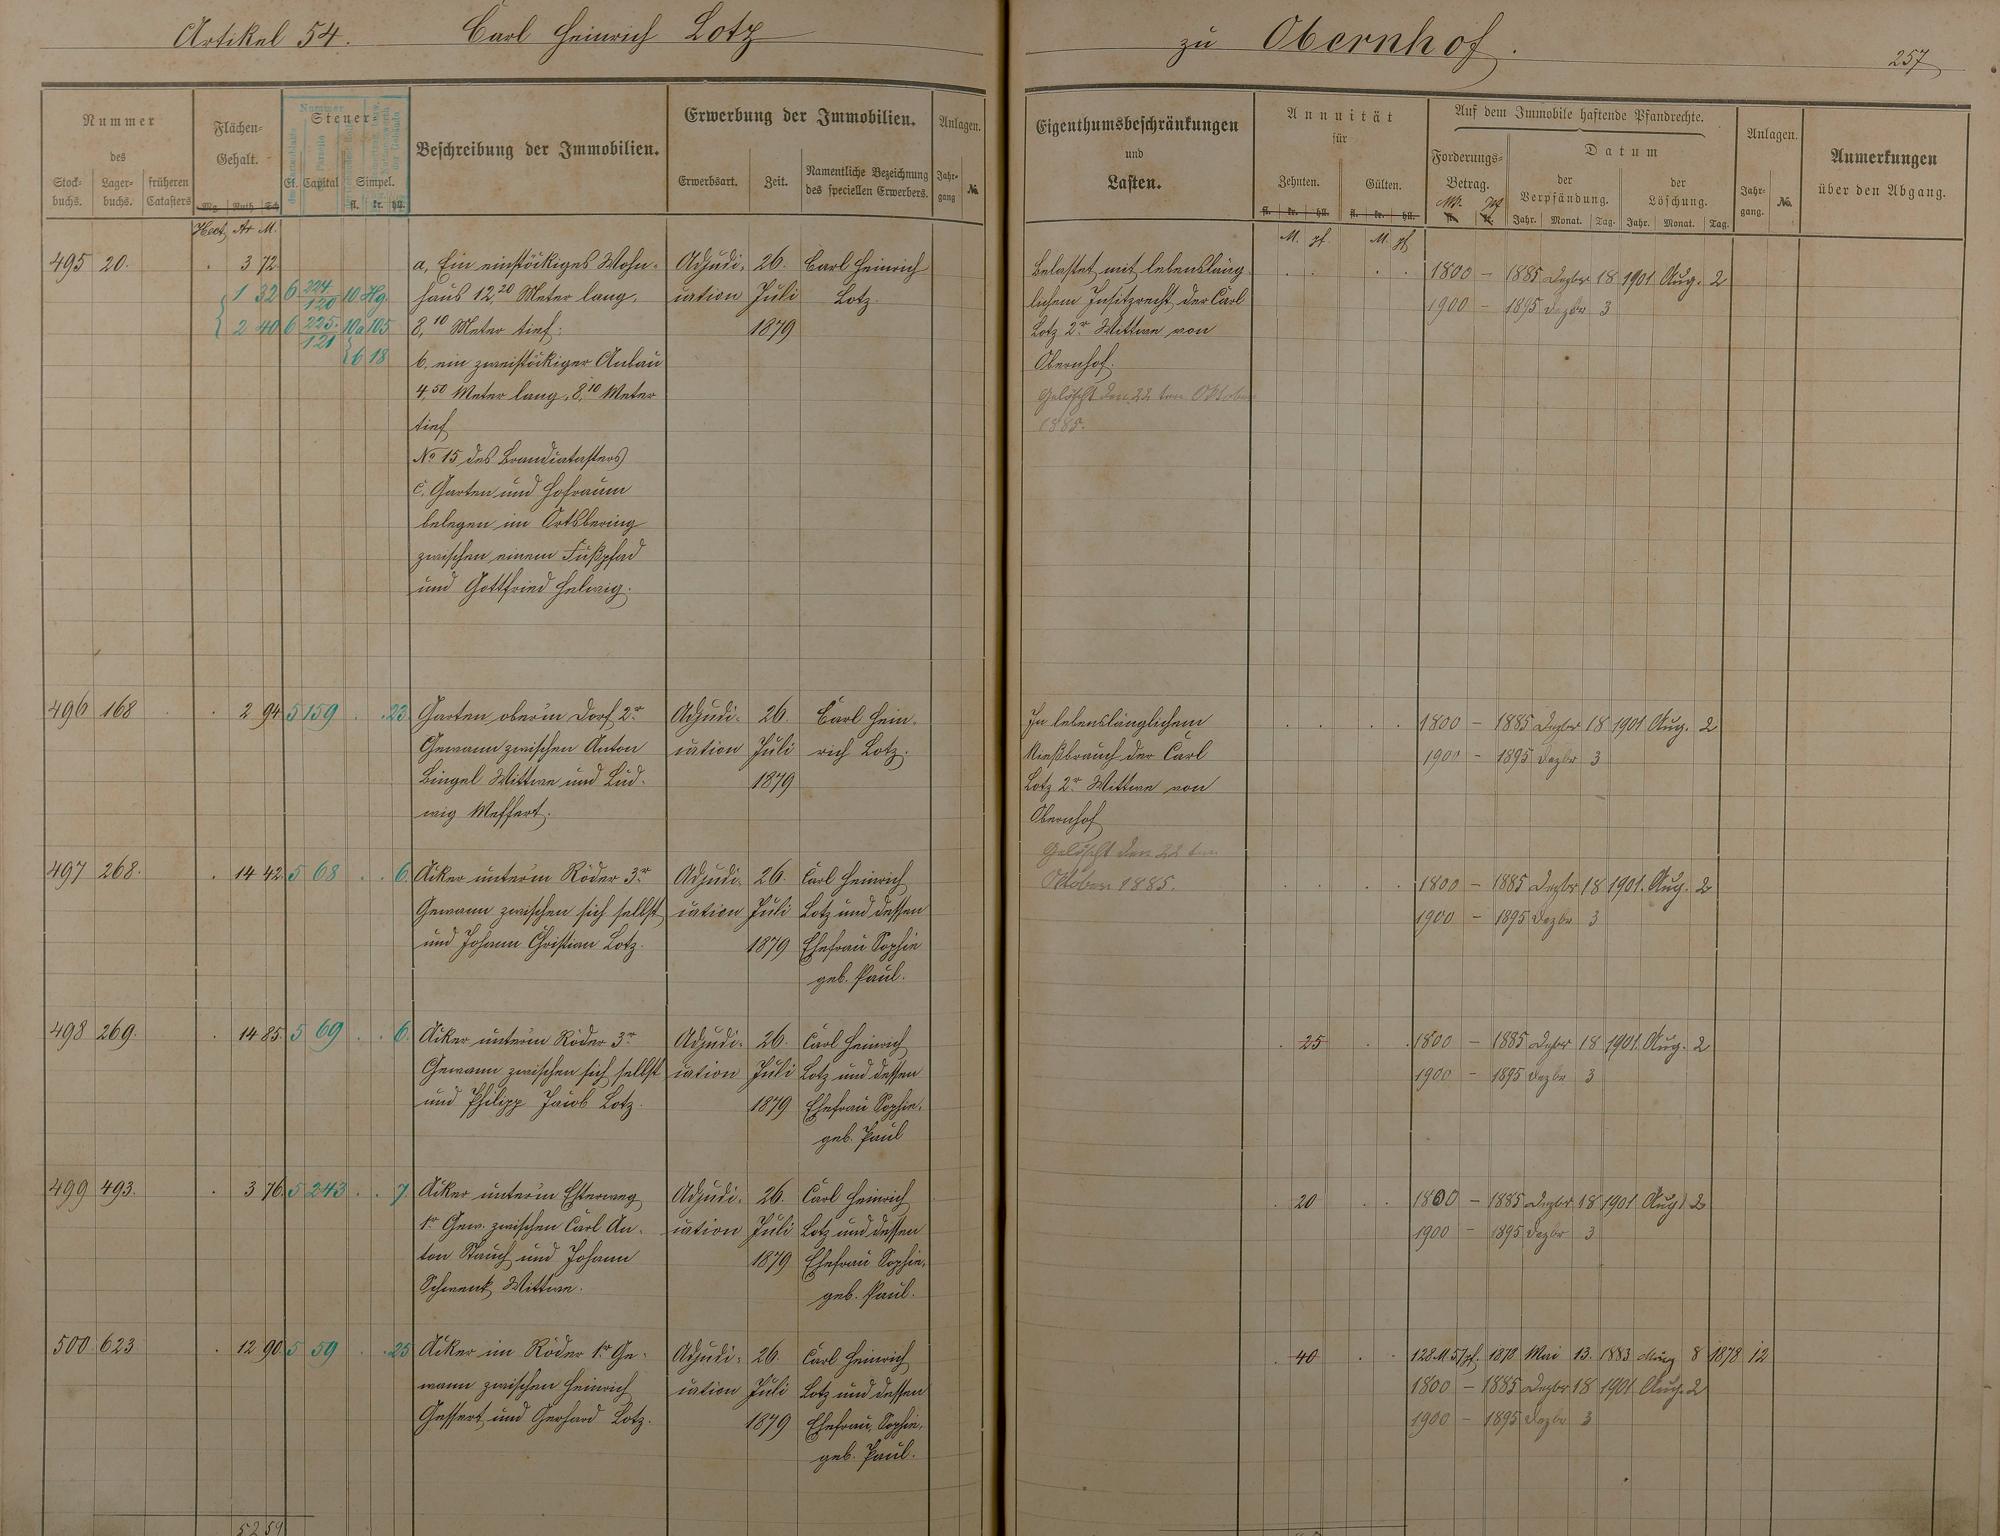 Artikel 54. Carl Heinrich Lotz
zu Obernhof.
257
Nummer des
Stock-buchs. Lager-buchs. früheren Catasters
Flächen-Gehalt.
Mg. Ruth Sch
Hect. Ar M.
Steuer
Cl. Capital Simpel.
fl. kr. hll.
Beschreibung der Immobilien.
Erwerbung der Immobilien.
Erwerbsart. Zeit. Namentliche Bezeichnung des speciellen Erwerbers.
Anlagen.
Jahr-gang №
Eigenthumsbeschränkungen
und
Lasten.
Annuität
für
Zehnten. Gülten.
fl. kr. hll. fl. kr. hll.
M. pf. M. pf.
Auf dem Immobile haftende Pfandrechte.
Forderungs-Betrag.
Mk. Pf
fl. kr.
Datum
der Verpfändung. der Löschung.
Jahr. Monat. Tag. Jahr. Monat. Tag.
Anlagen.
Jahr-gang. No.
Anmerkungen
über den Abgang.
495 20. 3 72
1 32 6 224/120 10 Hg.
2 40 6 225/121 10 a 105
b 18
a, Ein einstöckiges Wohn-
haus 12,20 Meter lang,
8,10 Meter tief;
b, ein zweistöckiger Anbau
4,50 Meter lang, 8,10 Meter
tief
No 15 des Brandcatasters
c, Garten und Hofraum
belegen im Ortsbering
zwischen einem Fußpfad
und Gottfried Helwig.
Adjudi- 26. Carl Heinrich
cation Juli Lotz.
1879
Belastet mit lebensläng
lichem Insitzrecht der Carl
Lotz 2r Wittwe von
Obernhof.
Gelöscht den 22 ten Oktober
1885.
1800 – 1885 Dezbr 18 1901 Aug. 2
1900 – 1895 Dezbr 3
496 168 2 94 5 159 . . 23.
Garten oberm Dorf 2r
Gewann zwischen Anton
Bingel Wittwe und Lud-
wig Meffert.
Adjudi- 26. Carl Hein-
cation Juli rich Lotz.
1879
In lebenslänglichem
Nießbrauch der Carl
Lotz 2r Wittwe von
Obernhof
Gelöscht den 22 ten
Oktober 1885.
1800 – 1885 Dezbr 18 1901 Aug. 2
1900 – 1895 Dezbr 3
497 268. 14 42 5 68 . . 6.
Acker unterm Röder 3r
Gewann zwischen sich selbst
und Johann Christian Lotz.
Adjudi- 26. Carl Heinrich
cation Juli Lotz und dessen
1879 Ehefrau Sophie
geb. Paul.
1800 – 1885 Dezbr 18 1901. Aug. 2
1900 – 1895 Dezbr 3
498 269. 14 85 5 69 . . 6.
Acker unterm Röder 3r
Gewann zwischen sich selbst
und Philipp Jacob Lotz.
Adjudi- 26. Carl Heinrich
cation Juli Lotz und dessen
1879 Ehefrau Sophie,
geb. Paul
25
1800 – 1885 Dezbr 18 1901. Aug. 2
1900 – 1895 Dezbr 3
499 493. 3 76 5 243 . . 7.
Acker unterm Esterweg
1r Gew. zwischen Carl An-
ton Stauch und Johann
Schwenk Wittwe.
Adjudi- 26. Carl Heinrich
cation Juli Lotz und dessen
1879 Ehefrau Sophie,
geb. Paul.
20
1800 – 1885 Dezbr 18 1901 Aug. 2
1900 – 1895 Dezbr 3
500 623 12 90 5 59 . . 25
Acker im Röder 1r Ge-
wann zwischen Heinrich
Gessert und Gerhard Lotz.
Adjudi- 26. Carl Heinrich
cation Juli Lotz und dessen
1879 Ehefrau, Sophie,
geb. Paul.
40
128 M 57 pf. 1878 Mai 13. 1883 Aug 8 1878 12
1800 – 1885 Dezbr 18 1901 Aug. 2
1900 – 1895 Dezbr 3
52 59